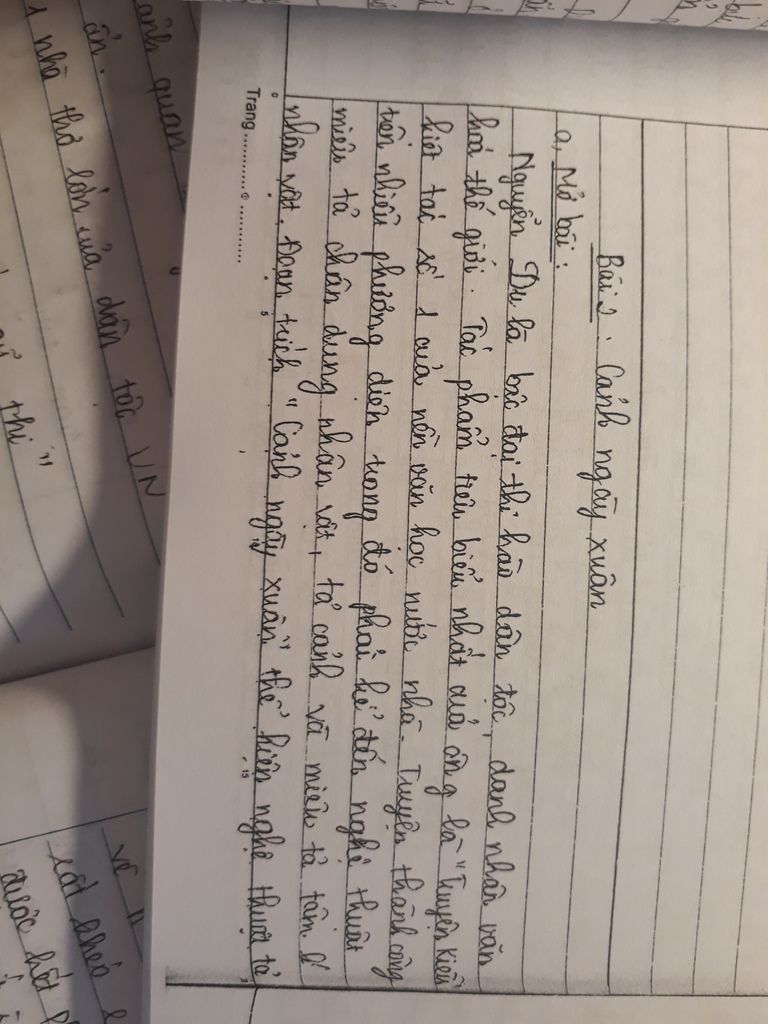 Bài 2: Cảnh ngày xuân
a, Mở bài:
Nguyễn Du là bậc đại thi hào dân tộc, danh nhân văn
hoá thế giới. Tác phẩm tiêu biểu nhất của ông là "Truyện Kiều
kiệt tác số 1 của nền văn học nước nhà. Truyện thành công
trên nhiều phương diện trong đó phải kể đến nghệ thuật
miêu tả chân dung nhân vật, tả cảnh và miêu tả tâm lí
nhân vật. Đoạn trích "Cảnh ngày xuân" thể hiện nghệ thuật tả
Trang
0
5
15
quan
ấn.
1 nhà thơ lớn của dân tộc VN
thi"
về
rất khéo
được hết